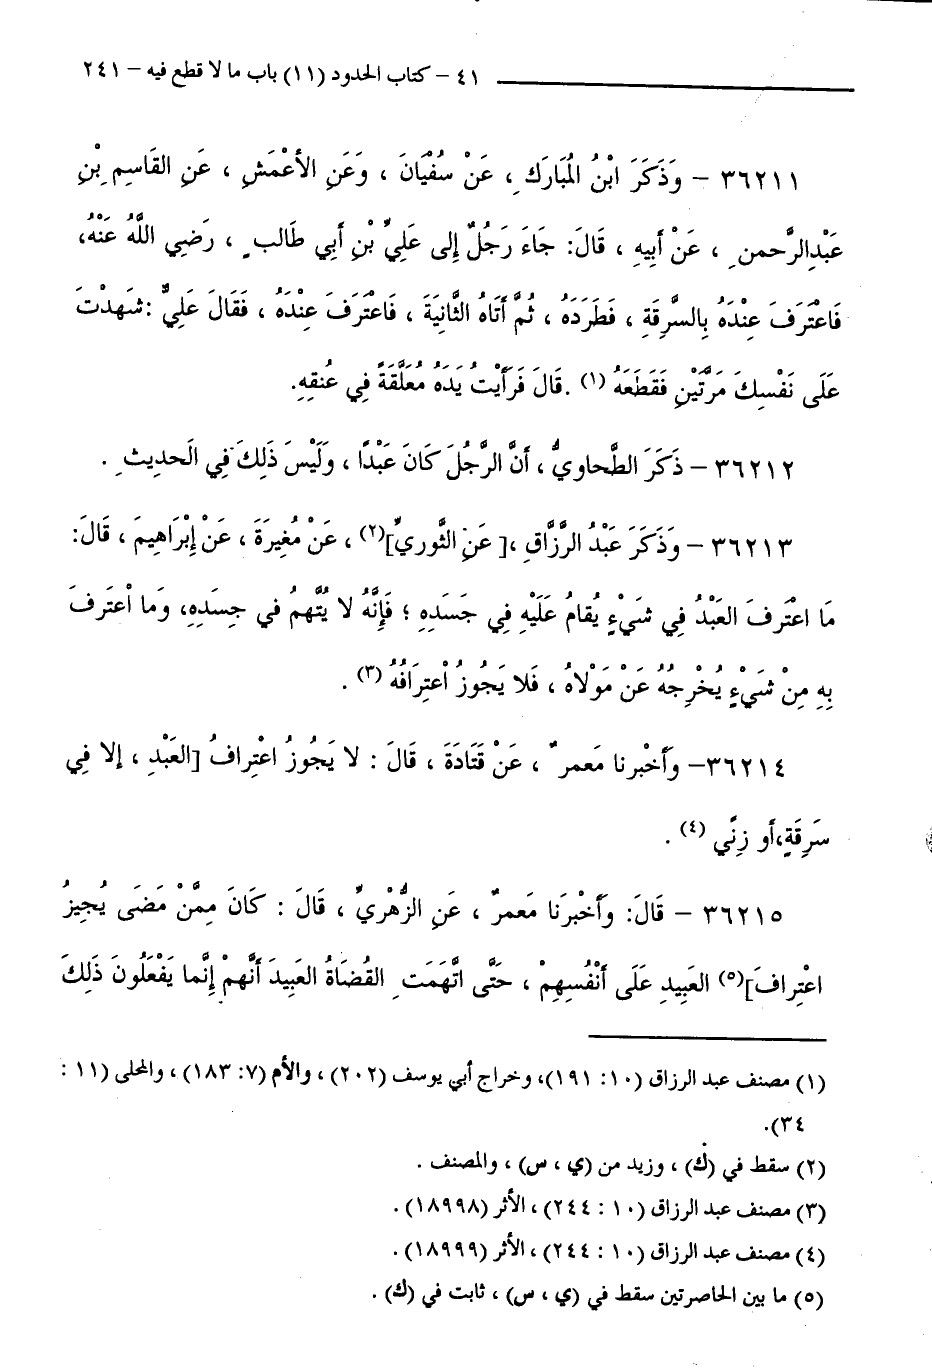 ٤١ – كتاب الحدود (١١) باب ما لا قطع فيه – ٢٤١
٣٦٢١١ – وَذَكَرَ ابْنُ الُمبَارَكِ ، عَنْ سُفْيَانَ ، وَعَنِ الأعْمَشِ ، عَنِ القَاسِمِ بْنِ
عَبْدِالرَّحمنِ ، عَنْ أبِيهِ ، قَالَ: جَاءَ رَجُلٌ إلى عَلِيِّ بْنِ أبِي طَالبٍ ، رَضِي اللَّهُ عَنْهُ،
فَاعْتَرَفَ عِنْدَهُ بِالسَّرِقَةِ ، فَطَرَدَهُ ، ثُمَّ أتَاهُ الثَّانِيَةَ ، فَاعْتَرَفَ عِنْدَهُ ، فَقَالَ عَلِيٌّ :شَهِدْتَ
عَلَى نَفْسِكَ مَرَّتَيْنِ فَقَطَعَهُ (١) .قَالَ فَرَأيْتُ يَدَهُ مُعَلَّقَةً فِي عُنقِهِ.
٣٦٢١٢ – ذَكَرَ الطَّحاوِيُّ ، أنَّ الرَّجُلَ كَانَ عَبْدًا ، وَلَيْسَ ذَلِكَ فِي الَحدِيثِ .
٣٦٢١٣ – وَذَكَرَ عَبْدُ الرَّزَّاقِ ،[ عَنِ الثَّورِيِّ](٢) ، عَنْ مُغِيرَةَ ، عَنْ إبْرَاهِيمَ ، قَالَ:
مَا اعْتَرفَ العَبْدُ فِي شَيْءٍ يُقامُ عَلَيْهِ فِي جَسَدِهِ ؛ فَإِنَّهُ لا يُتَّهمُ في جسَدِهِ، وَما اعْتَرفَ
بِهِ مِنْ شَيْءٍ يُخْرِجُهُ عَنْ مَوْلاهُ ، فَلا يَجُوزُ اعْتِرَافُهُ (٣) .
٣٦٢١٤– وَأخْبرنا مَعمرٌ ، عَنْ قَتَادَةَ ، قَالَ : لا يَجُوزُ اعْتِرافُ [العَبْدِ ، إلا فِي
سَرِقَةٍ،أو زِنًي (٤) .
٣٦٢١٥ – قَالَ: وَأخْبرَنا مَعمرٌ ، عَنِ الزُّهْرِيِّ ، قَالَ : كَانَ مِمَّنْ مَضَى يُجِيزُ
اعْتِرافَ](٥) العَبِيدِ عَلَى أنْفُسِهِمْ ، حَتَّى اتَّهَمَتِ القُضَاةُ العَبِيدَ أنَّهمْ إنَّما يَفْعَلُونَ ذَلِكَ
(١) مصنف عبد الرزاق (١٠: ١٩١)، وخراج أبي يوسف (٢٠٢) ، والأم (٧: ١٨٣) ، والمحلى (١١ :
٣٤).
(٢) سقط في (ك) ، وزيد من (ي ، س) ، والمصنف .
(٣) مصنف عبد الرزاق (١٠ : ٢٤٤) ، الأثر (١٨٩٩٨) .
(٤) مصنف عبد الرزاق (١٠ : ٢٤٤) ، الأثر (١٨٩٩٩) .
(٥) ما بين الحاصرتين سقط في (ي ، س) ، ثابت في (ك) .